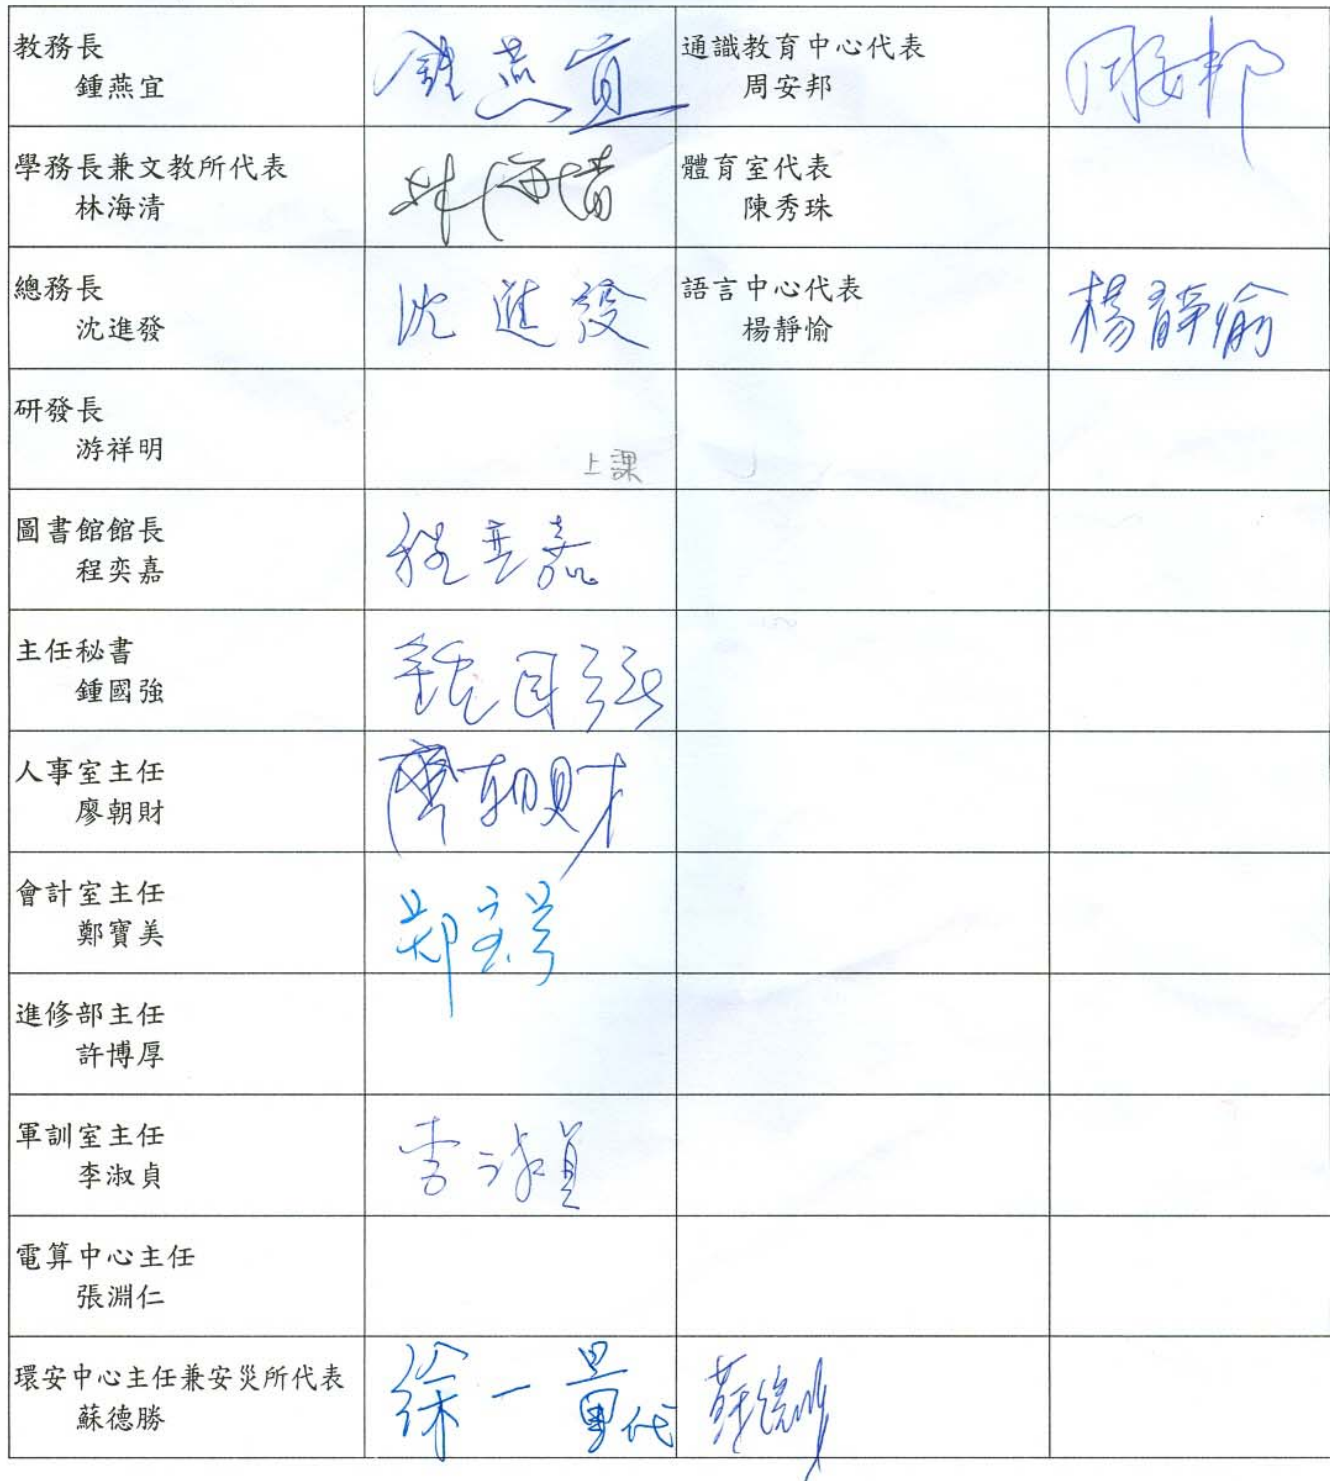 教務長
鍾燕宜
鍾燕宜
通識教育中心代表
周安邦
周安邦
學務長兼文教所代表
林海清
林海清
體育室代表
陳秀珠
總務長
沈進發
沈進發
語言中心代表
楊靜愉
楊靜愉
研發長
游祥明
上課
圖書館館長
程奕嘉
程奕嘉
主任秘書
鍾國強
鍾国強
人事室主任
廖朝財
廖朝財
會計室主任
鄭寶美
進修部主任
許博厚
軍訓室主任
李淑貞
李淑貞
電算中心主任
張淵仁
環安中心主任兼安災所代表
蘇德勝
徐一量代